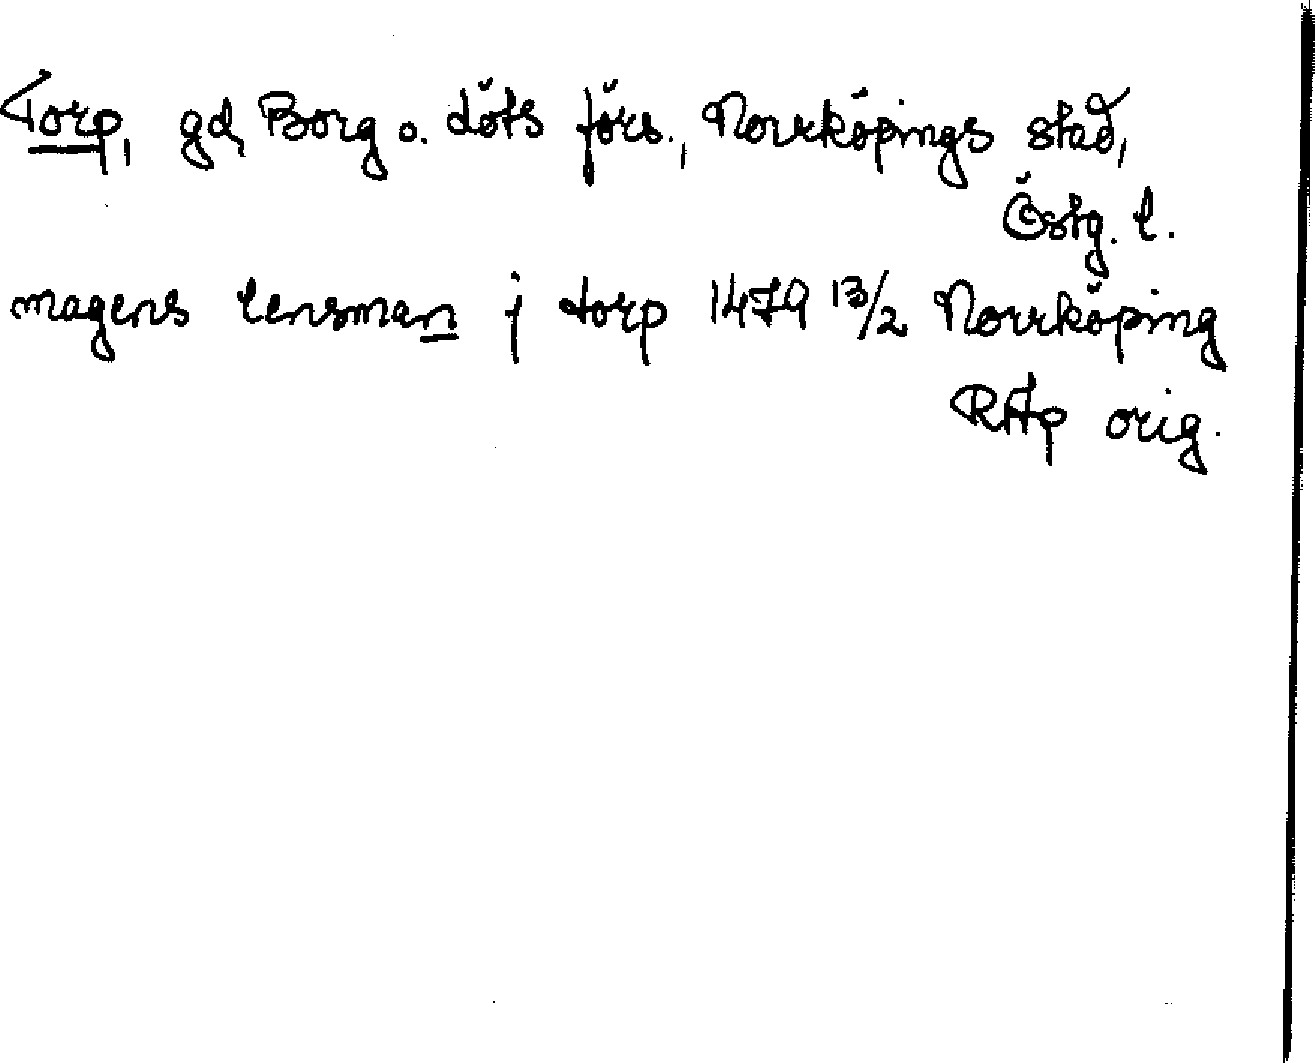 Torp, gd, Borg o. Löts förs., Norrköpings stad,
Östg. l.
magens lensman j torp 1479 13/2 Norrköping
RAp orig.